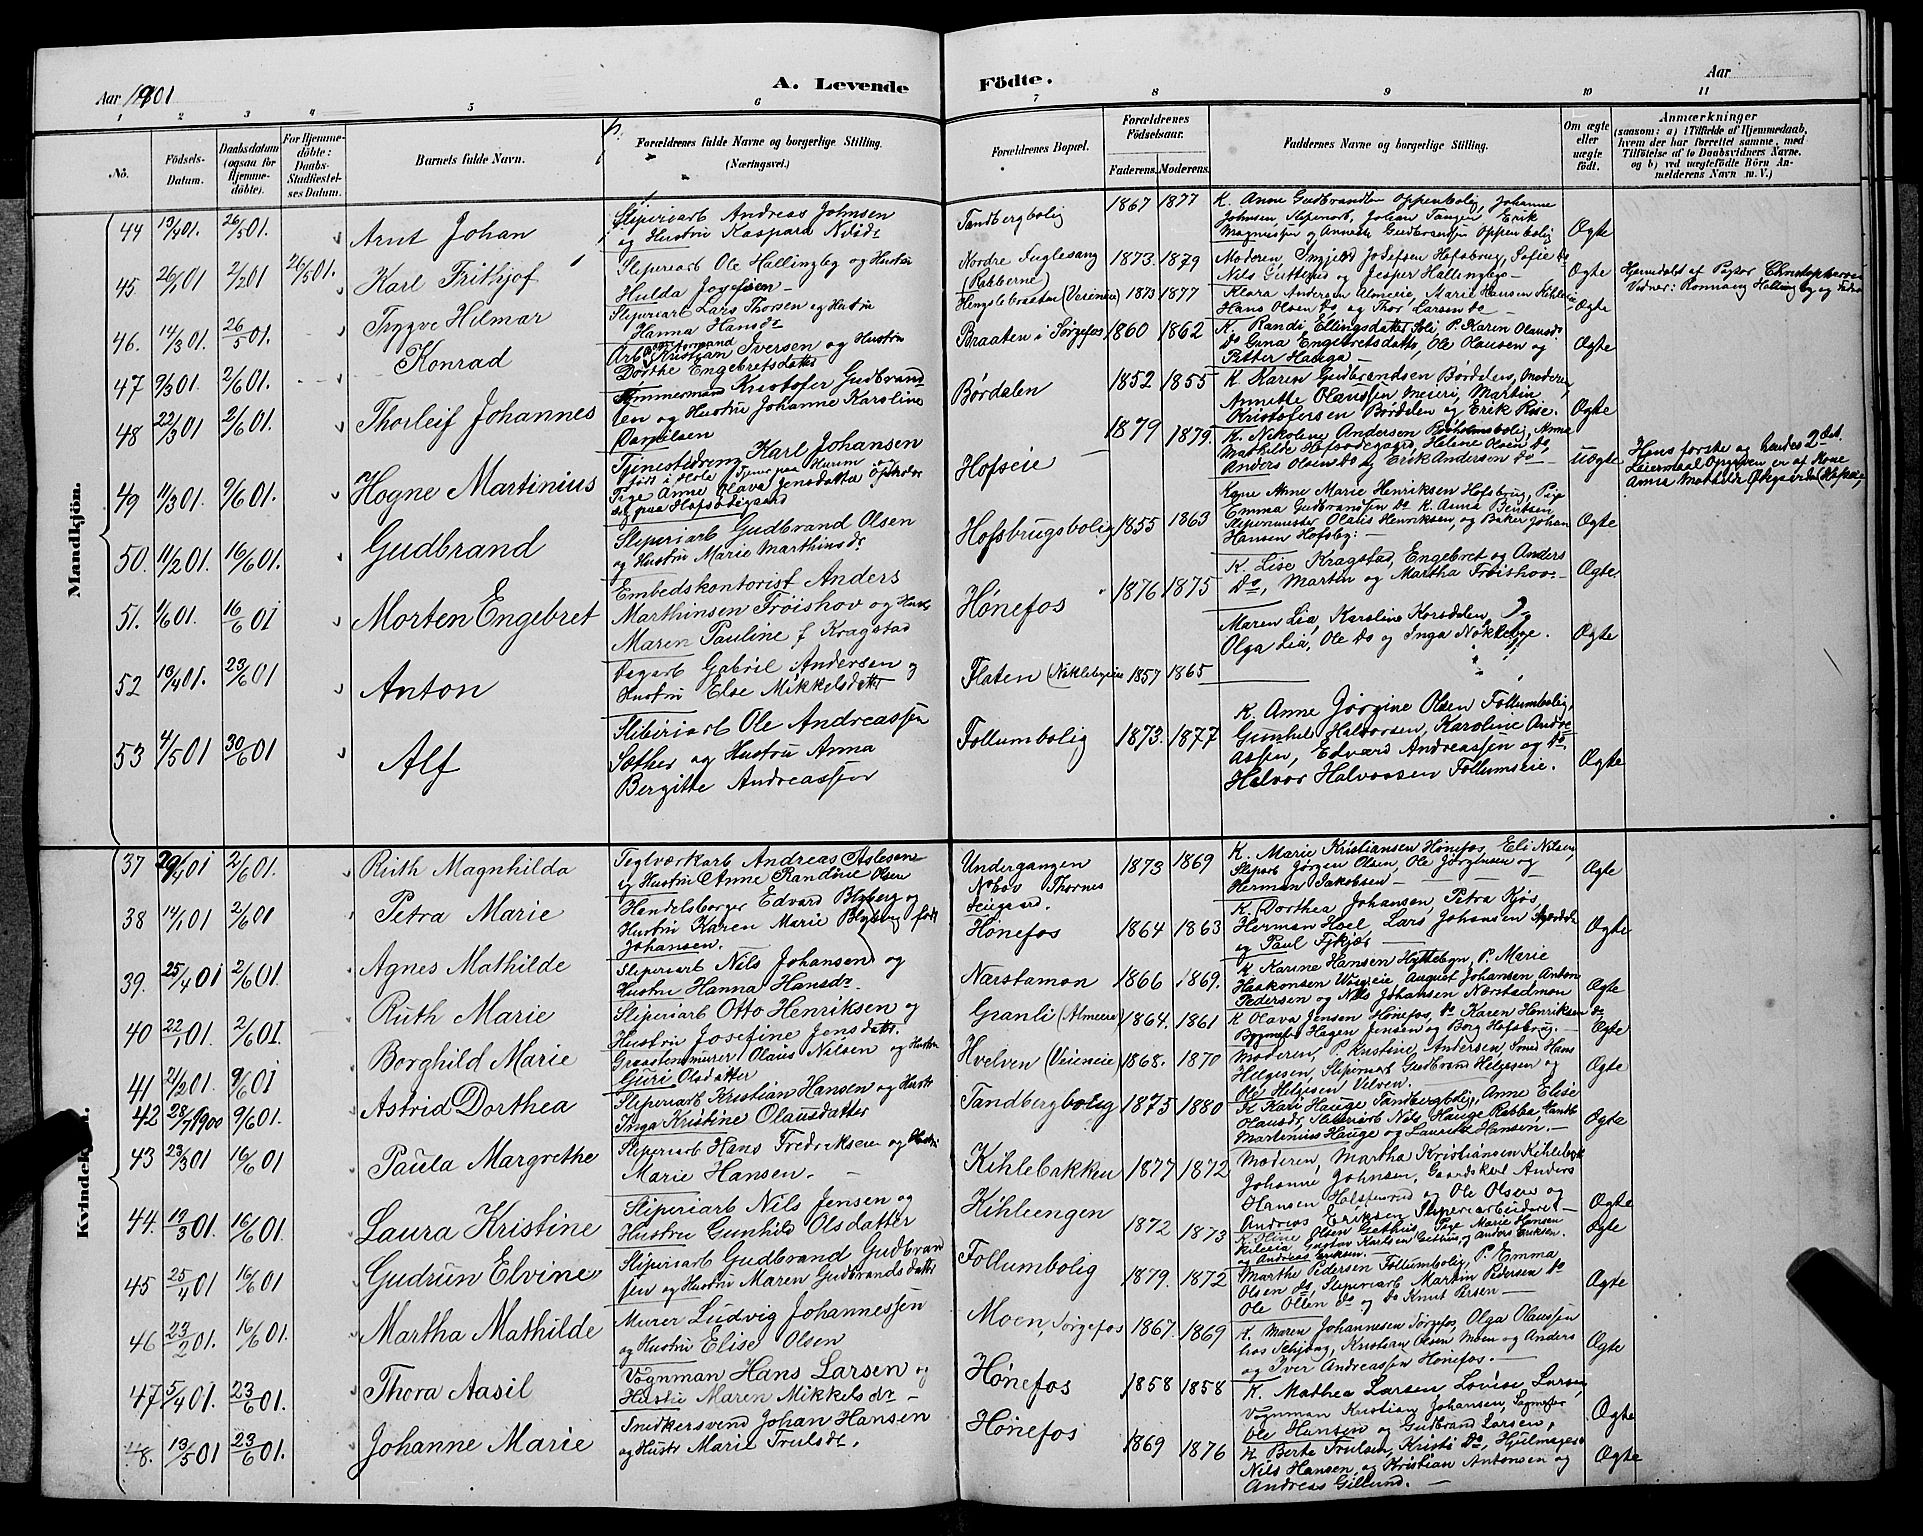 Aar 1901
A. Levende Födte.
Aar
1 2 3 4 5 6 7 8 9 10 11
No.
Födsels-Datum.
Daabsdatum (ogsaa for Hjemmedöbte).
For Hjemmedöbte: Daabs-Stadfæstelses Datum.
Barnets fulde Navn.
Forældrenes fulde Navne og borgerlige Stilling. (Næringsvei.)
Forældrenes Bopæl.
Forældrenes Födselsaar.
Faderens. Moderens.
Faddernes Navne og borgerlige Stilling.
Om ægte eller uægte födt.
Anmærkninger
(saasom: a) i Tilfælde af Hjemmedaab, hvem der har forrettet samme, med Tilföielse af to Daabsvidners Navne, og b) ved uægtefödte Börn Anmelderens Navn m. V.)
Mandkjön.
44 13/4 01. 26/5 01. Arnt Johan
Sliperiarb Andreas Johnsen
og Hustru Kaspara Nilsdr
Tandbergbolig 1867 1877
K. Anne Gudbrandsen Oppenbolig, Johanne
Johnsen, Sliperiarb, Johan Tangen, Erik
Magnussen og Annette Gudbransen Oppenbolig
Ægte
45 26/1 01 2/2 01 26/5 01. Karl Frithjof
Sliperiarb Ole Hallingby og Hustru
Hulda Josefsen
Nordre Fuglesang (Rabberne) 1873 1879
Moderen, Ingjerd Josefsen Hofsbrug, Sofie do
Nils Gutterud og Jesper Hallingby
Ægte
Hjemdøbt af Pastor Christophersen
Vidner: Rønnaug Hallingby og Fader
46. 14/3 01. 26/5 01. Trygve Hilmar
Sliperiarb Lars Thorsen og Hustru
Hanna Hansdr
Hengslebraaten (Veieneie) 1873 1877
Klara Andersen Almeie, Marie Hansen Kihleie
Hans Olsen do og Thor Larsen do
Ægte
47 9/3 01. 2/6 01. Konrad
Arb formand Kristian Iversen og Hustru
Dorthe Engebretsdatter
Braaten i Sørgefos 1860 1862
K. Randi Ellingsdatter Soli, P. Karen Olausdr
do Guna Engebretsdatter, Ole Olausen og
Petter Hauga
Ægte
48 22/3 01 2/6 01. Thorleif Johannes
Tømmermand Kristofer Gudbrand
sen og Hustru Johanne Karoline
Danielsen
Børdalen 1852 1855
K. Karen Gudbrandsen Børdalen, Moderen,
Annette Olaussen Meieri, Martin
Kristofersen Børdalen og Erik Rise.
Ægte
49 11/3 01. 9/6 01. Hogne Martinius
Tjenestedreng Karl Johansen
født i Hole Tjener paa Hurum
Pige Anne Olava Jensdatter Opholder
sig paa Hofsødegaard
Hofseie 1879 1879.
K. Nikoline Andersen, Anne
Mathilde Hofsødegaard, Helene Olsen do,
Anders Olsen do og Erik Andersen do
uægte
Hans første og hendes 2det
Leiermaal Opgiven er af Kone
50. 11/2 01. 16/6 01. Gudbrand
Sliperiarb Gudbrand Olsen
og Hustru Marie Marthinsdr
Hofsbrugsbolig 1855 1863
Kone Anne Marie Henriksen Hofsbrug, Pige
Emma Gudbransen do K. Anna Bentsen
Slipermester Olaus Henriksen, og Baker Johan
Hansen Hofsby:
Ægte
51. 1/6 01. 16/6 01 Morten Engebret
Embedskontorist Anders
Marthinsen Trøishov og Hustru
Maren Pauline f Kragstad
Hønefos 1876 1875
K. Lise Kragstad, Engebret og Anders
do, Martin og Martha Trøishov
Ægte
52 13/4 01. 23/6 01 Anton
Dagarb Gabril Andersen og
Hustru Else Mikkelsdatter
Flaten (Nøklebyeie) 1857 1865
Maren Lia, Karoline Korsdalen, og
Olga Lia, Ole do og Inga Nøkleby.
Ægte
53 4/5 01 30/6 01 Alf
Slibiriarb Ole Andreassen
Sæther og Hustru Anna
Bergitte Andreassen
Follumbolig 1873. 1877
K. Anne Jørgine Olsen Follumbolig,
Gunhel Halvorsen, Karoline Andre
assen, Edvard Andreassen og do,
Halvor Halvorsen Follumseie.
Ægte
Kvindekjön.
37 29/4 01 2/6 01. Ruth Magnhilda
Teglværkarb Andreas Aslesen
og Hustru Anne Randine Olsen
Undergangen Nobov Thornes Leugaard. 1873 1869
K. Marie Kristiansen Hønefos, Eli Nilsen,
Sliparb Jørgen Olsen, Ole Jørgensen og
Herman Jakobsen
Ægte
38 14/1 01 2/6 01 Petra Marie
Handelsborger Edvard Blyberg og
Hustru Karen Marie Blyberg født
Johansen.
Hønefos 1864 1863
K. Dorthea Johansen, Petra Kjøs,
Herman Hoel, Lars Johansen
og Paul Fjkjær
Ægte
39. 25/4 01 2/6 01. Agnes Mathilde
Sliperiarb Nils Johansen og
Hustru Hanna Hansdr
Nærstamon 1866 1869.
K Karine Hansen Hyttebyn, P. Marie
Haakonsen Wigseie, August Johansen Anton
Pedersen og Nils Johansen Nærstadmon
Ægte
40 22/1 01. 2/6 01. Ruth Marie
Sliperiarb Otto Henriksen og
Hustru Josefine Jensdatter.
Granli (Almeie) 1864. 1861
K Olava Jensen Hønefos, do Karen Henriksen do
Bygmester Hagen Jensen og Borg Hofsbrug.
Ægte
41 21/2 01. 9/6 01 Borghild Marie
Graastensmurer Olaus Nilsen og Hustru
Guri Olsdatter
Hvelven (Veieneie) 1868. 1870
Moderen, P Kristine Andersen, Smed Hans
Helgesen, Sliperiarb Gudbrand Helgesen og
Ole Helgesen Velven.
Ægte
42 28/7 1900 9/6 01. Astrid Dorthea
Sliperiarb Kristian Hansen og Hustru
Inga Kristine Olausdatter
Tandbergbolig 1875 1880
K Kari Hauge Tandbergbolig, Anne Elise
Olausdr, Sliberiarb Nils Hauge Rabba
Martinius Hauge og Lauritz Hansen.
Ægte
43 23/3 01 16/6 01 Paula Margrethe
Sliperiarb Hans Fredriksen og Hustru
Marie Hansen.
Kihlebakken 1877 1872
Moderen, Martha Kristiansen Kihlebak
Johanne Johnsen, Gaardskarl Anders
Hansen Halstenrud og Ole Olsen og
Andreas Eriksen Sliperiarbeidere
Ægte
44. 19/3 01. 16/6 01. Laura Kristine
Sliperiarb Nils Jensen og
Hustru Gunhild Olsdatter
Kihleengen 1872 1873
K Oline Olsen Gethus, Pige Marie Hansen
Kileeia Gustav Karlsen Gethus, og Anders Eriksen.
og Andreas Eriksen.
Ægte
45 25/4 01 16/6 01 Gudrun Elvine
Sliperiarb Gudbrand Gudbrand
sen og Hustru Maren Gudbrandsdatter
Follumbolig 1879. 1872
Marthe Pedersen Follumbolig, P. Emma
Olsen do, Sliperiarb Martin Pedersen do
Ole Olsen do og do Knut Persen
Ægte
46 23/2 01 16/6 01. Martha Mathilde
Murer Ludvig Johannessen
og Hustru Elise Olsen
Moen, Sørgefos 1867. 1869
K. Maren Johannesen Sørgefos Olga Olaussen
hos Schjong, Kristian Olsen Moen og Anders
og Iver Andreassen Hønefos.
Ægte
47 5/4 01. 23/6 01. Thora Aasil
Vognman Hans Larsen og
Hustru Maren Mikkelsdr
Hønefos 1858 1858
K. Mathea Larsen, Lovise Larsen,
Vognman Kristian Johansen, Sagmester
Ole Hansen og Gudbrand Larsen,
Ægte
48. 13/5 01 23/6 01. Johanne Marie
Snedkersvend Johan Hansen
og Hustr Marie Trulsdr.
Hønefos 1869 1876
K Berte Trulsen, Kristi do, Hjulmager
Nils Hansen og Kristian Antonsen og
Andreas Gillund.
Ægte